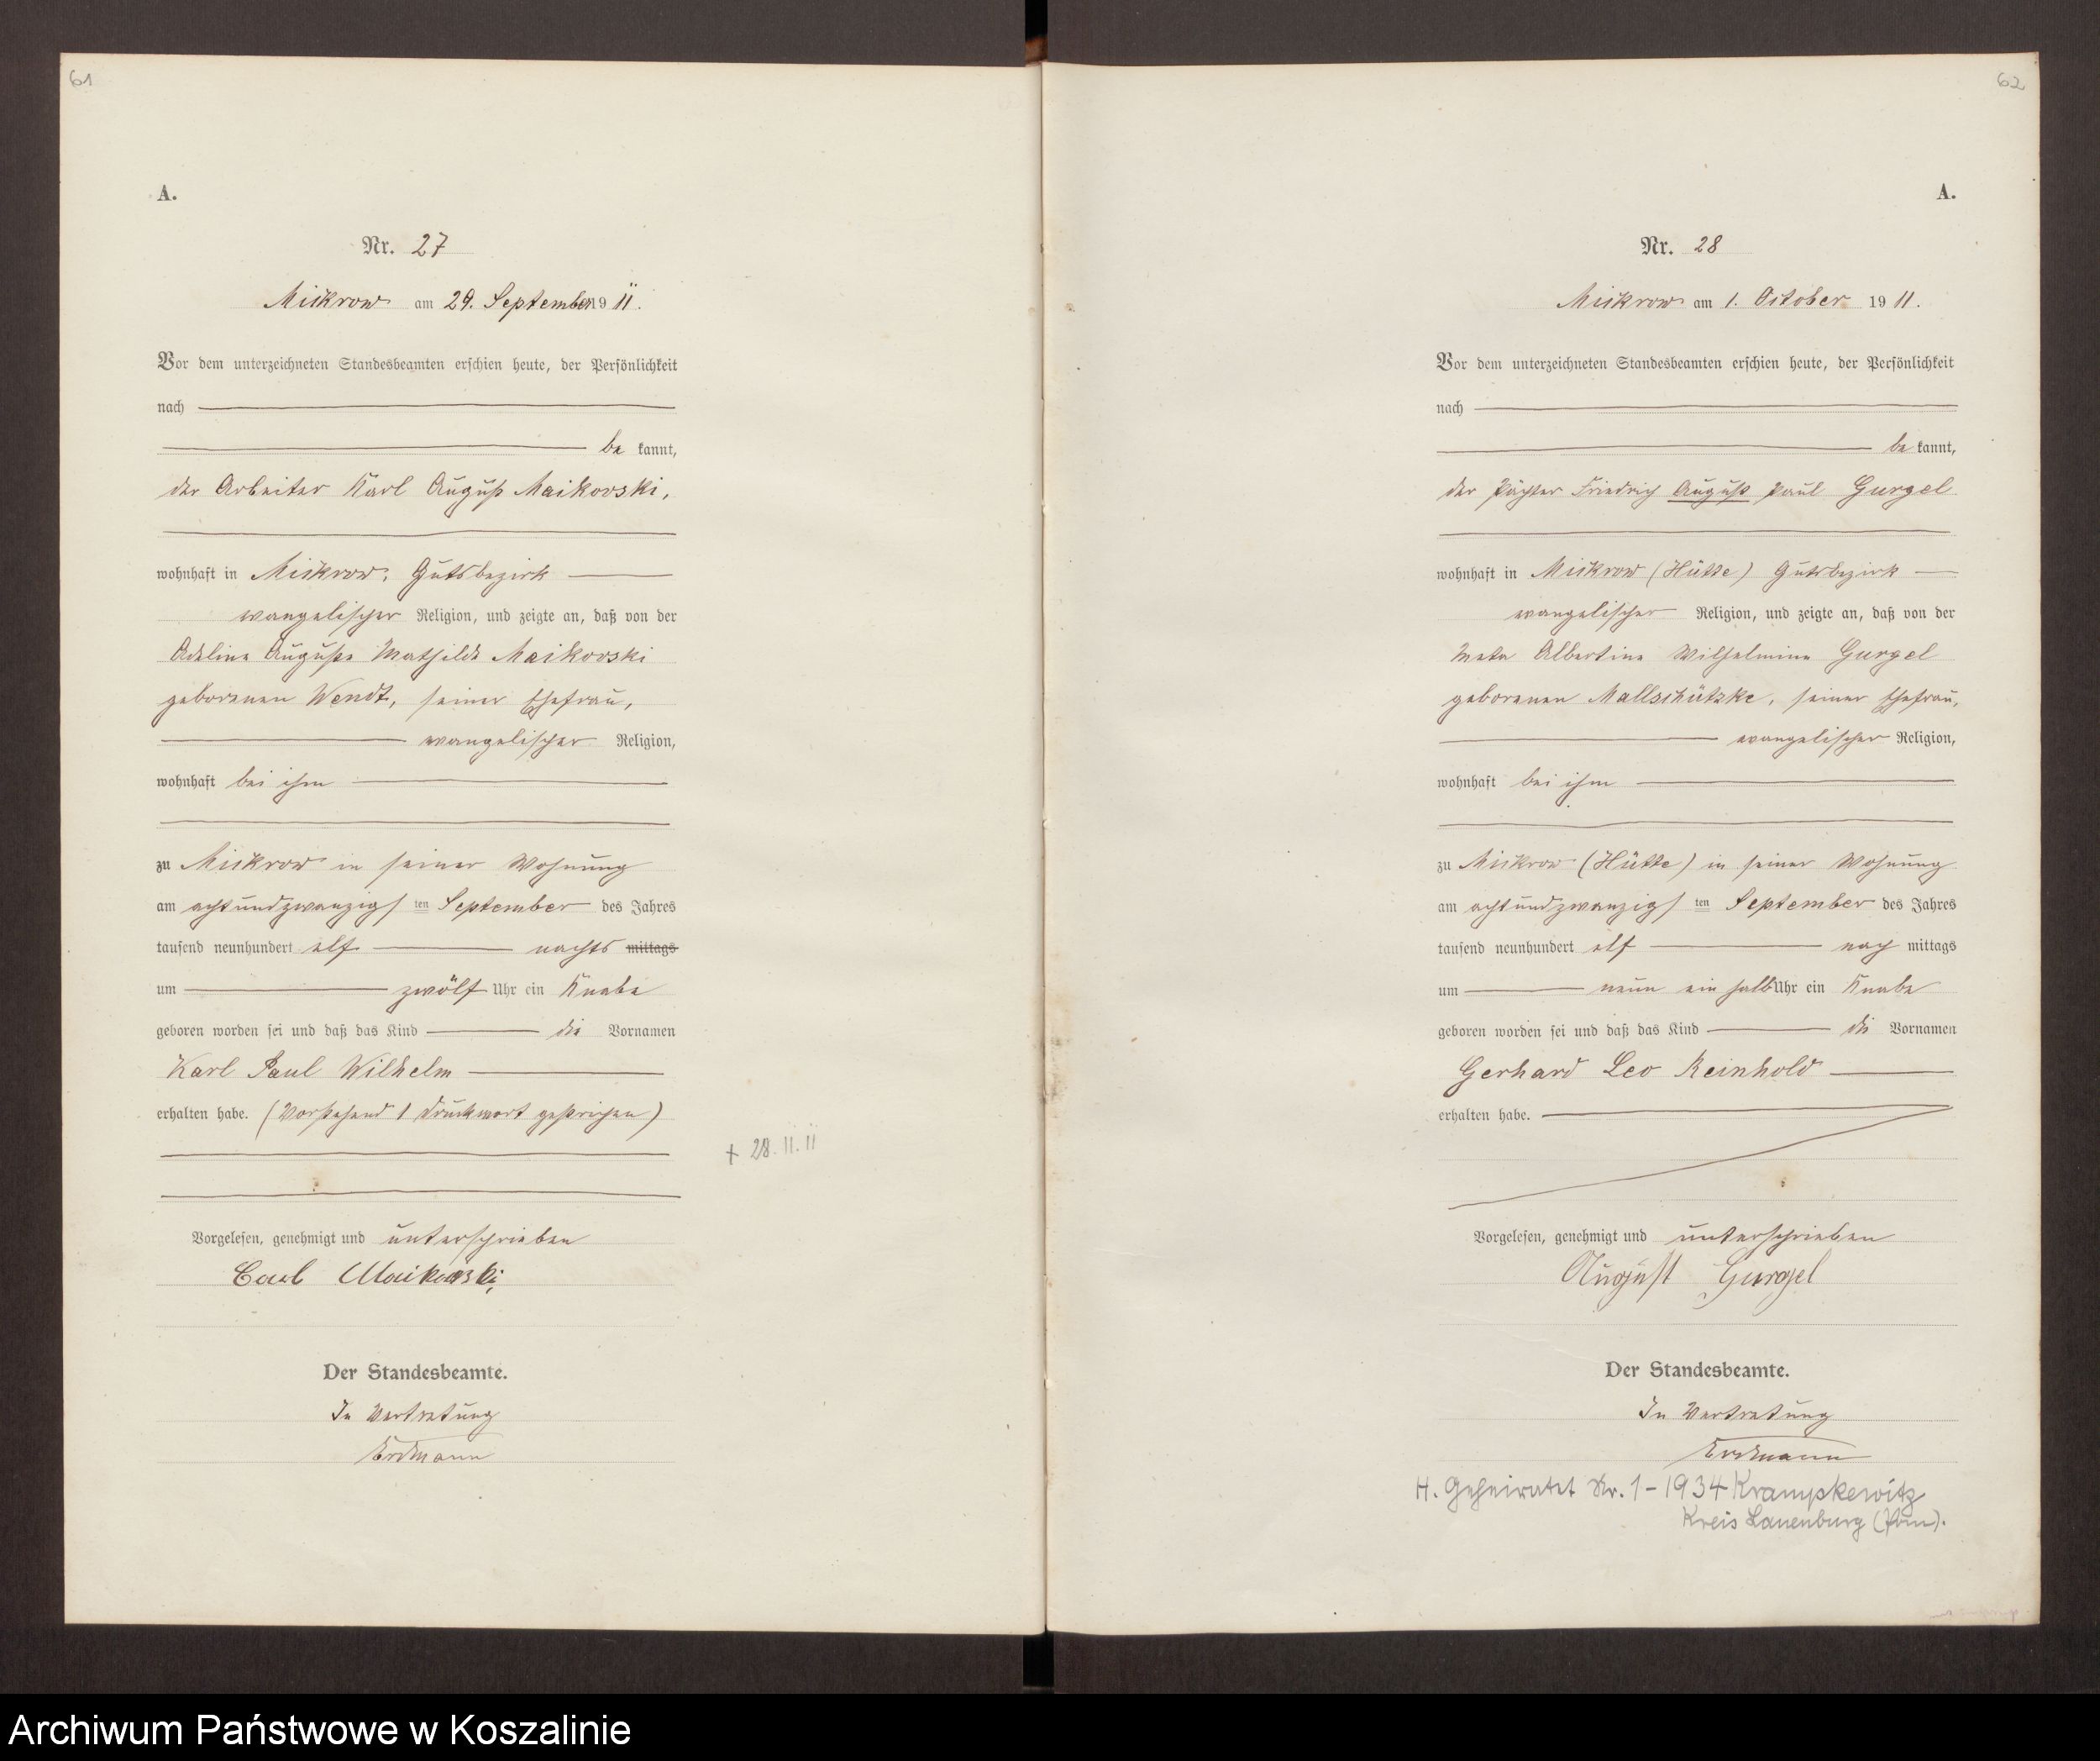 61
A.
Nr. 27
Mickrow am 29. September 1911.
Vor dem unterzeichneten Standesbeamten erschien heute, der Persönlichkeit
nach
be kannt,
der Arbeiter Karl August Maikovski,
wohnhaft in Mickrow, Gutsbezirk
evangelischer Religion, und zeigte an, daß von der
Adeline Auguste Mathilde Maikovski
geborenen Wendt, seiner Ehefrau,
evangelischer Religion,
wohnhaft bei ihm
zu Mickrow in seiner Wohnung
am achtundzwanzigs ten September des Jahres
tausend neunhundert elf nachts mittags
um zwölf Uhr ein Knabe
geboren worden sei und daß das Kind die Vornamen
Karl Paul Wilhelm
erhalten habe. (Vorstehend 1 Druckwort gestrichen)
+ 28.11.11
Vorgelesen, genehmigt und unterschrieben
Carl Maikowski
Der Standesbeamte.
In Vertretung
Erdmann
62
A.
Nr. 28
Mickrow am 1. October 1911.
Vor dem unterzeichneten Standesbeamten erschien heute, der Persönlichkeit
nach
be kannt,
der Pächter Friedrich August Paul Gurgel
wohnhaft in Mickrow (Hütte) Gutsbezirk
evangelischer Religion, und zeigte an, daß von der
Meta Albertine Wilhelmine Gurgel
geborenen Mallschützke, seiner Ehefrau,
evangelischer Religion,
wohnhaft bei ihm
zu Mickrow (Hütte) in seiner Wohnung
am achtundzwanzigs ten September des Jahres
tausend neunhundert elf nach mittags
um neun ein halb Uhr ein Knabe
geboren worden sei und daß das Kind die Vornamen
Gerhard Leo Reinhold
erhalten habe.
Vorgelesen, genehmigt und unterschrieben
August Gurgel
Der Standesbeamte.
In Vertretung
Erdmann
H. Geheiratet Nr. 1-1934 Krampkewitz
Kreis Lauenburg (Pom).
Archiwum Państwowe w Koszalinie